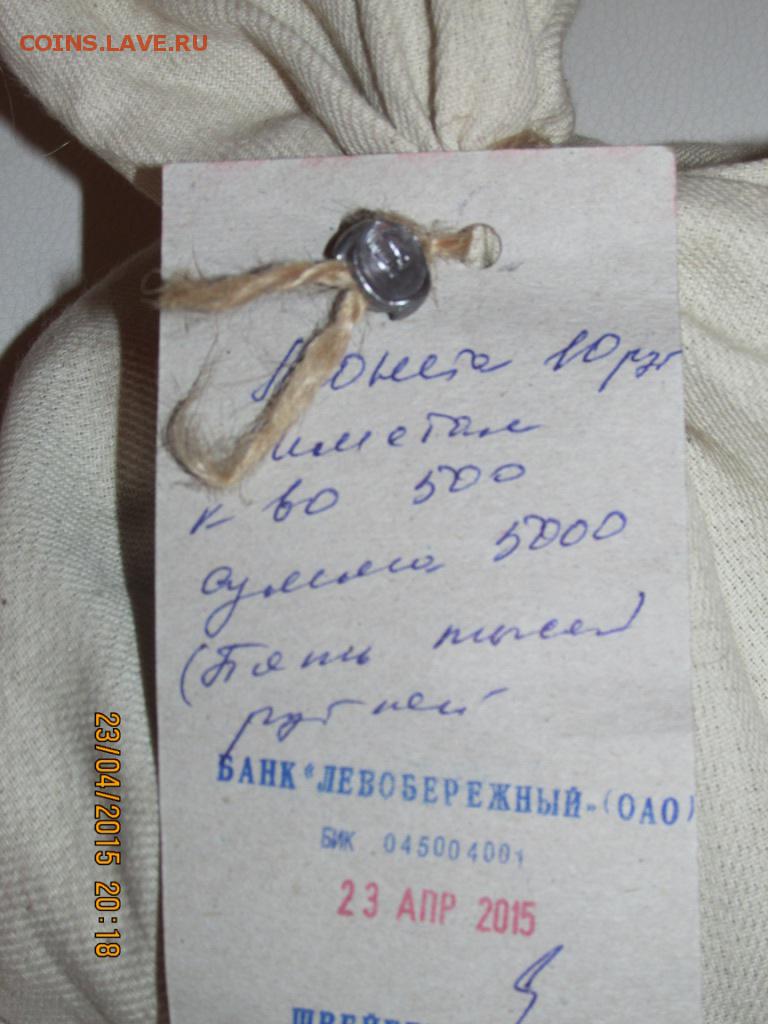 COINS.LAVE.RU
Монета 10 руб
иметал
к-во 500
сумма 5000
(Пять тысяч)
рублей
БАНК "ЛЕВОБЕРЕЖНЫЙ" (ОАО)
БИК 045004001
23 АПР 2015
23/04/2015 20:18